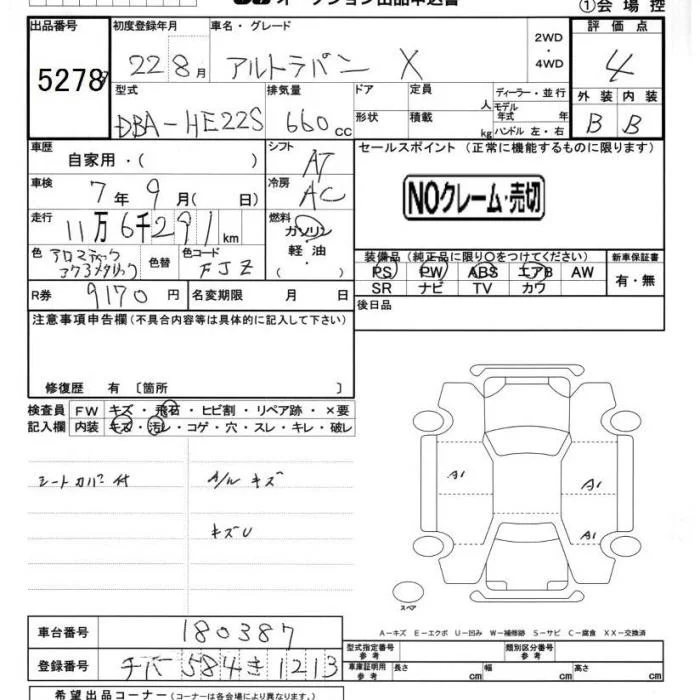 オークション出品申込書
①会場控
出品番号 初度登録年月 車名・グレード 2WD ・ 4WD 評価点
5278 22 8月 アルトラパン X 4
型式 排気量 ドア 定員 人 ディーラー・並行 外装 内装
DBA-HE22S 660cc 形状 積載 kg モデル年式 年 ハンドル 左・右 B B
車歴 自家用・( ) シフト AT セールスポイント (正常に機能するものに限ります)
車検 7年9月( 日) 冷房 AC NOクレーム・売切
走行 11万6千291km 燃料 ガソリン 軽油 ( )
色 アロマティックアクアメタリック 色替 色コード FJZ
装備品 (純正品に限り○をつけてください) 新車保証書
PS PW ABS エアB AW 有・無
SR ナビ TV カワ
R券 9170円 名変期限 月 日 後日品
注意事項申告欄(不具合内容等は具体的に記入して下さい)
修復歴 有 〔箇所 〕
検査員 FW キズ・飛石・ヒビ割・リペア跡・×要
記入欄 内装 キズ・汚レ・コゲ・穴・スレ・キレ・破レ
シートカバー付 A/ル キズ
キズU
A1
A1
A1
スペア
A-キズ E-エクボ U-凹み W-補修跡 S-サビ C-腐食 XX-交換済
車台番号 180387
型式指定番号 参考 類別区分番号 参考
登録番号 チバ 584 き 1213
車庫証明用 参考 長さ cm 幅 cm 高さ cm
希望出品コーナー(コーナーは各会場により異なります。)